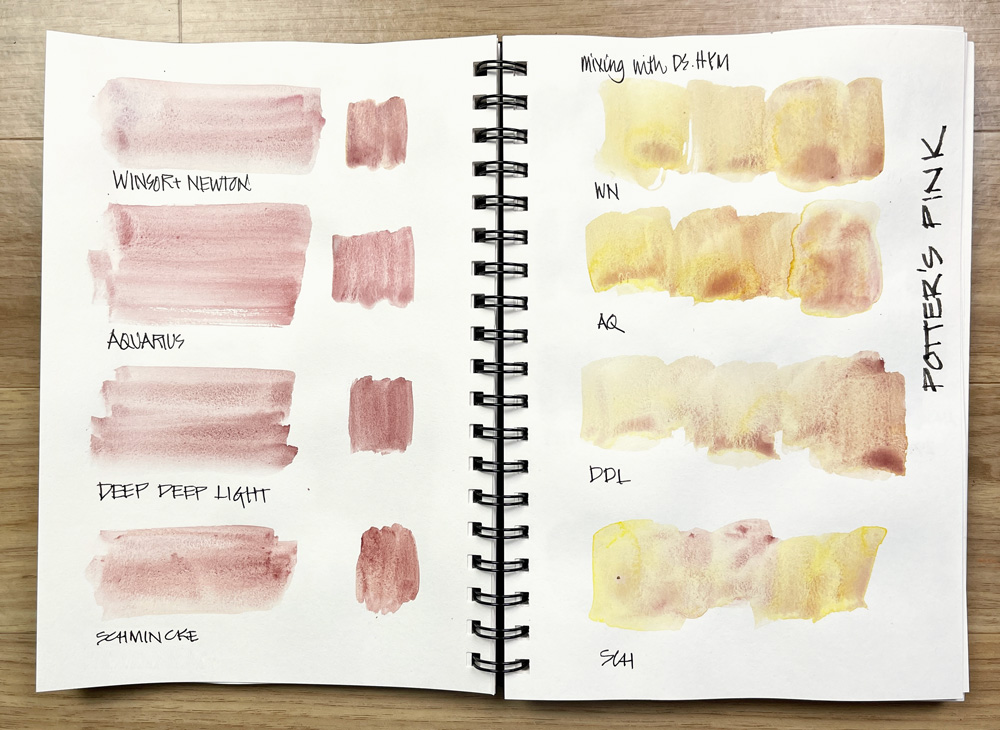 WINSOR + NEWTON
AQUARIUS
DEEP DEEP LIGHT
SCHMINCKE
mixing with DS. HYM
WN
AQ
DDL
SCH
POTTER'S PINK